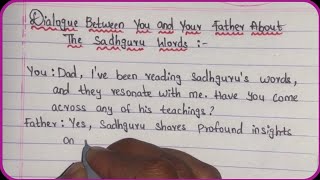 Dialogue Between You and Your Father About
The Sadhguru Words :-
You : Dad, I've been reading Sadhguru's words,
and they resonate with me. Have you come
across any of his teachings?
Father : Yes, Sadhguru shares profound insights
on